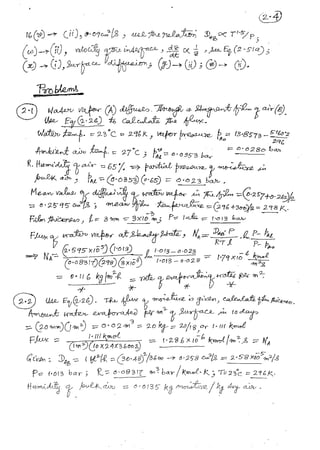 2.4
16(v) → (ii), 0.07 cm²/s, use the relation D_AB ∝ T^1.75/P;
(w) → (ii), velocity of the interface, dz/dt ∝ 1/z, see Eq (2-51a);
(x) → (i), Surface diffusion; → (ii); → (i).
Problems
2.1 Water vapor (A) diffuses through a stagnant film of air (B).
Use Eq (2.26) to calculate the flux.
Water temp. = 23°C = 296 K, vapor pressure, p = 13.8573 - 5160.2/296
= 0.0280 bar
Ambient air temp. = 27°C; = 0.0353 bar
R. Humidity of air = 65% ⇒ partial pressure of moisture in
bulk air, = (0.0353)(0.65) = 0.023 bar.
Mean value of diffusivity of water vapor in the film =
= 0.2595 cm²/s; mean film temperature = (296+300)/2 = 298 K.
Film thickness, l = 3 mm = 3×10⁻³ m; P = 1 atm = 1.013 bar
Flux of water vapor at steady state, N_A = D_AB P / RT l · ln P-P_Al / P-P_A0
⇒ N_A = (2.595×10⁻⁵)(1.013) / (0.08317)(298)(3×10⁻³) ln 1.013-0.023 / 1.013-0.028 = 1.79×10⁻⁶ kmol/m².s
= 0.116 kg/m².h = rate of evaporation of water per m².
2.2 Use Eq (2.26). The flux of moisture is given, calculate film thickness.
Amount water evaporated per m² of surface in 10 days
= (20 mm)(1 m²) = 0.02 m³ = 20 kg = 20/18, or 1.111 kmol
Flux = 1.111 kmol / (1 m²)(10×24×3600 s) = 1.286×10⁻⁶ kmol/m².s = N_A
Given: D_AB = 1 ft²/h = (30.48)²/3600 → 0.258 cm²/s = 2.58×10⁻⁵ m²/s
P = 1.013 bar; R = 0.08317 m³ bar/kmol.K; T = 23°C = 296 K.
Humidity of bulk air = 0.0135 kg moisture/kg dry air.